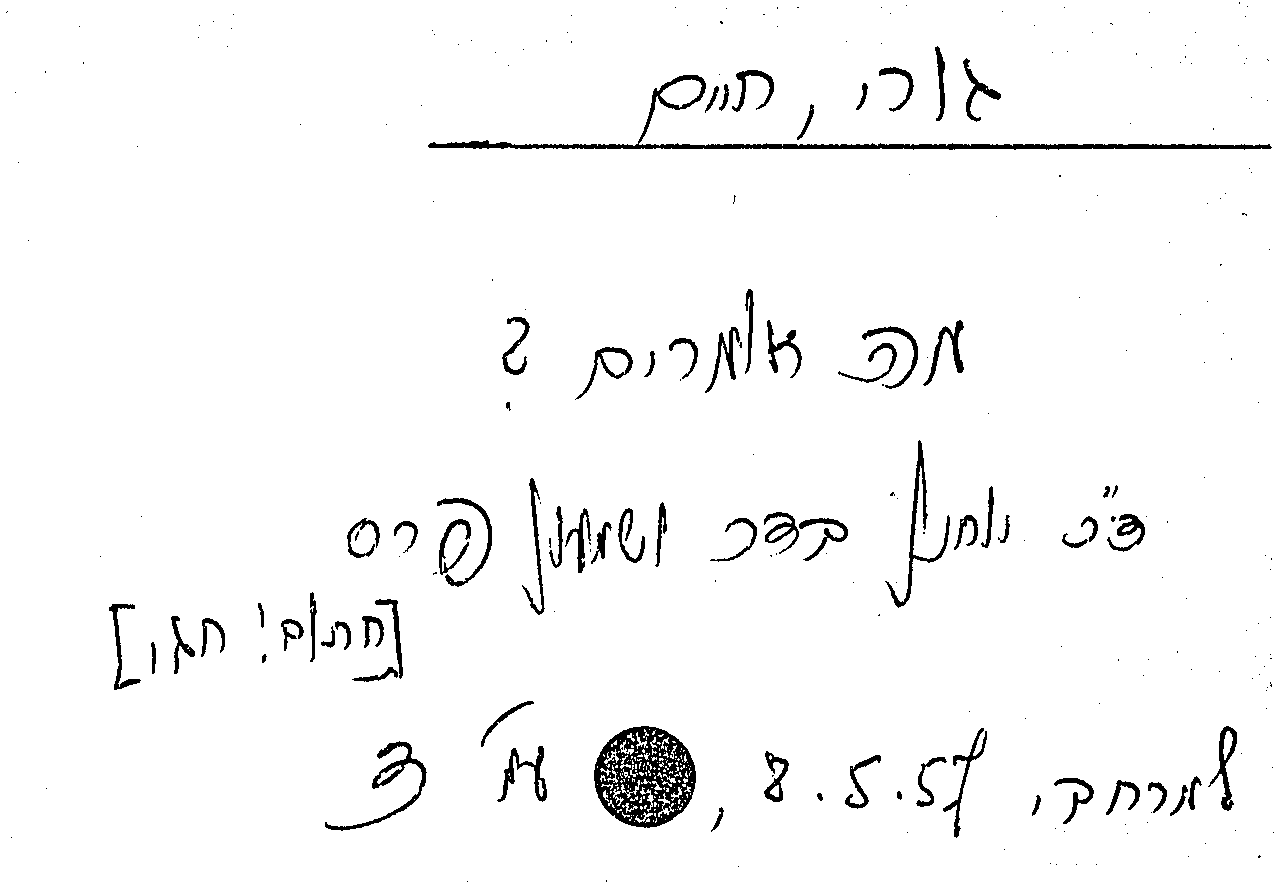 גורי, חיים
מה אומרים?
ד"ר יוחנן בדר ושמעון פרס
[חתום: חגי]
למרחב, 8.5.57, עמ' 3